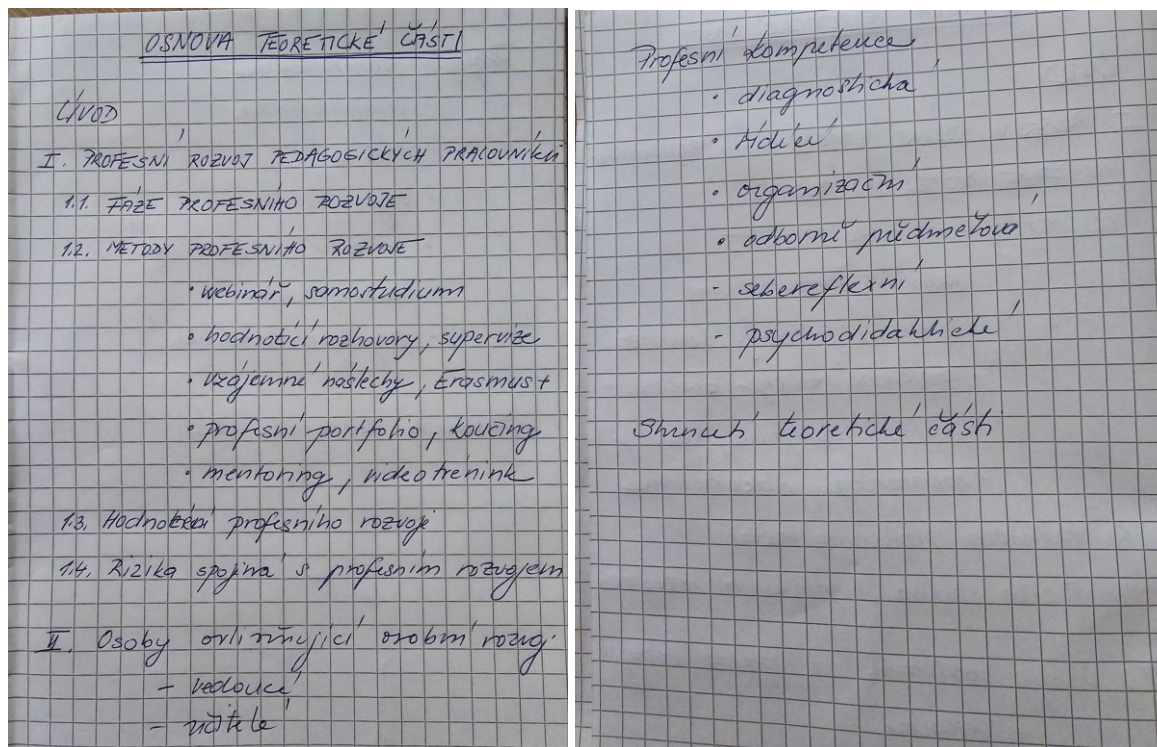 OSNOVA TEORETICKÉ ČÁSTI
ÚVOD
I. PROFESNÍ ROZVOJ PEDAGOGICKÝCH PRACOVNÍKŮ
1.1. FÁZE PROFESNÍHO ROZVOJE
1.2. METODY PROFESNÍHO ROZVOJE
• webinář, samostudium
• hodnotící rozhovory, supervize
• vzájemné náslechy, Erasmus+
• profesní portfolio, koučing
• mentoring, videotrénink
1.3. Hodnocení profesního rozvoje
1.4. Rizika spojená s profesním rozvojem
II. Osoby ovlivňující osobní rozvoj
- vedoucí
- učitelé
Profesní kompetence
• diagnostická
• řídící
• organizační
• odborně předmětová
- sebereflexní
- psychodidaktické
Shrnutí teoretické části